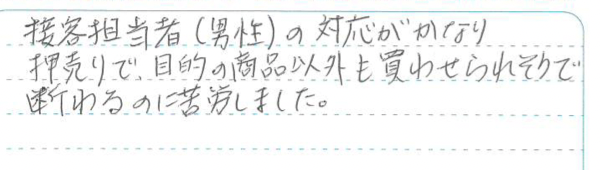 接客担当者(男性)の対応がかなり
押売りで、目的の商品以外も買わせられそうで
断わるのに苦労しました。